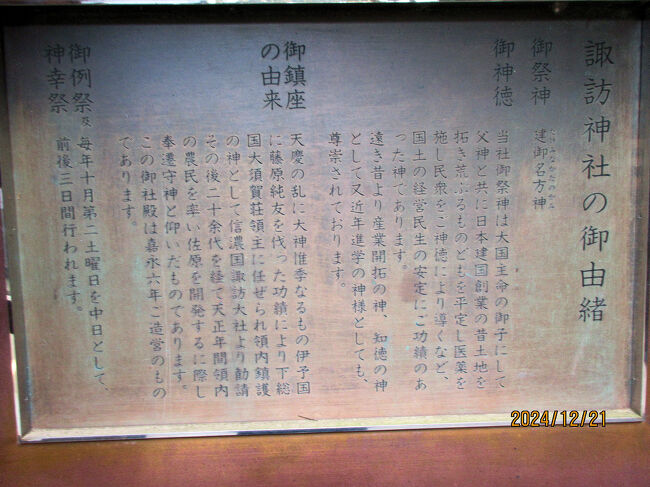 諏訪神社の御由緒
御祭神　建御名方神
たけみなかたのかみ
御神徳
当社御祭神は大国主命の御子にして
父神と共に日本建国創業の昔土地を
拓き荒ぶるものどもを平定し医薬を
施し民衆をご神徳により導くなど、
国土の経営民生の安定にご功績のあ
った神であります。
遠き昔より産業開拓の神、知徳の神
として又近年進学の神様としても、
尊崇されております。
御鎮座
の由来
天慶の乱に大神惟季なるもの伊予国
に藤原純友を伐った功績により下総
国大須賀荘領主に任ぜられ領内鎮護
の神として信濃国諏訪大社より勧請
その後二十余代を経て天正年間領内
の農民を率い佐原を開発するに際し
奉遷守神と仰いだものであります。
この御社殿は嘉永六年ご造営のもの
であります。
御例祭及
神幸祭
毎年十月第二土曜日を中日として、
前後三日間行われます。
2024/12/21